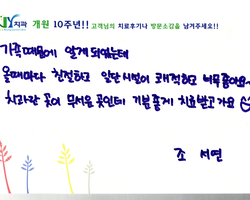 JY치과 개원 10주년!! 고객님의 치료후기나 방문소감을 남겨주세요!!
가족때문에 알게 되었는데
올때마다 친절하고 일단 시설이 쾌적하고 너무좋아요~
치과란 곳이 무서운 곳인데 기분좋게 치료받고가요
조 서연